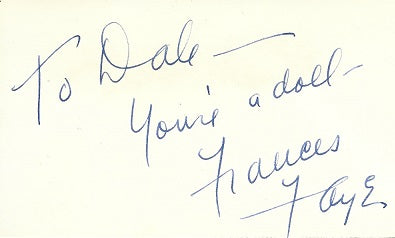 To Dale —
You're a doll —
Frances
Faye